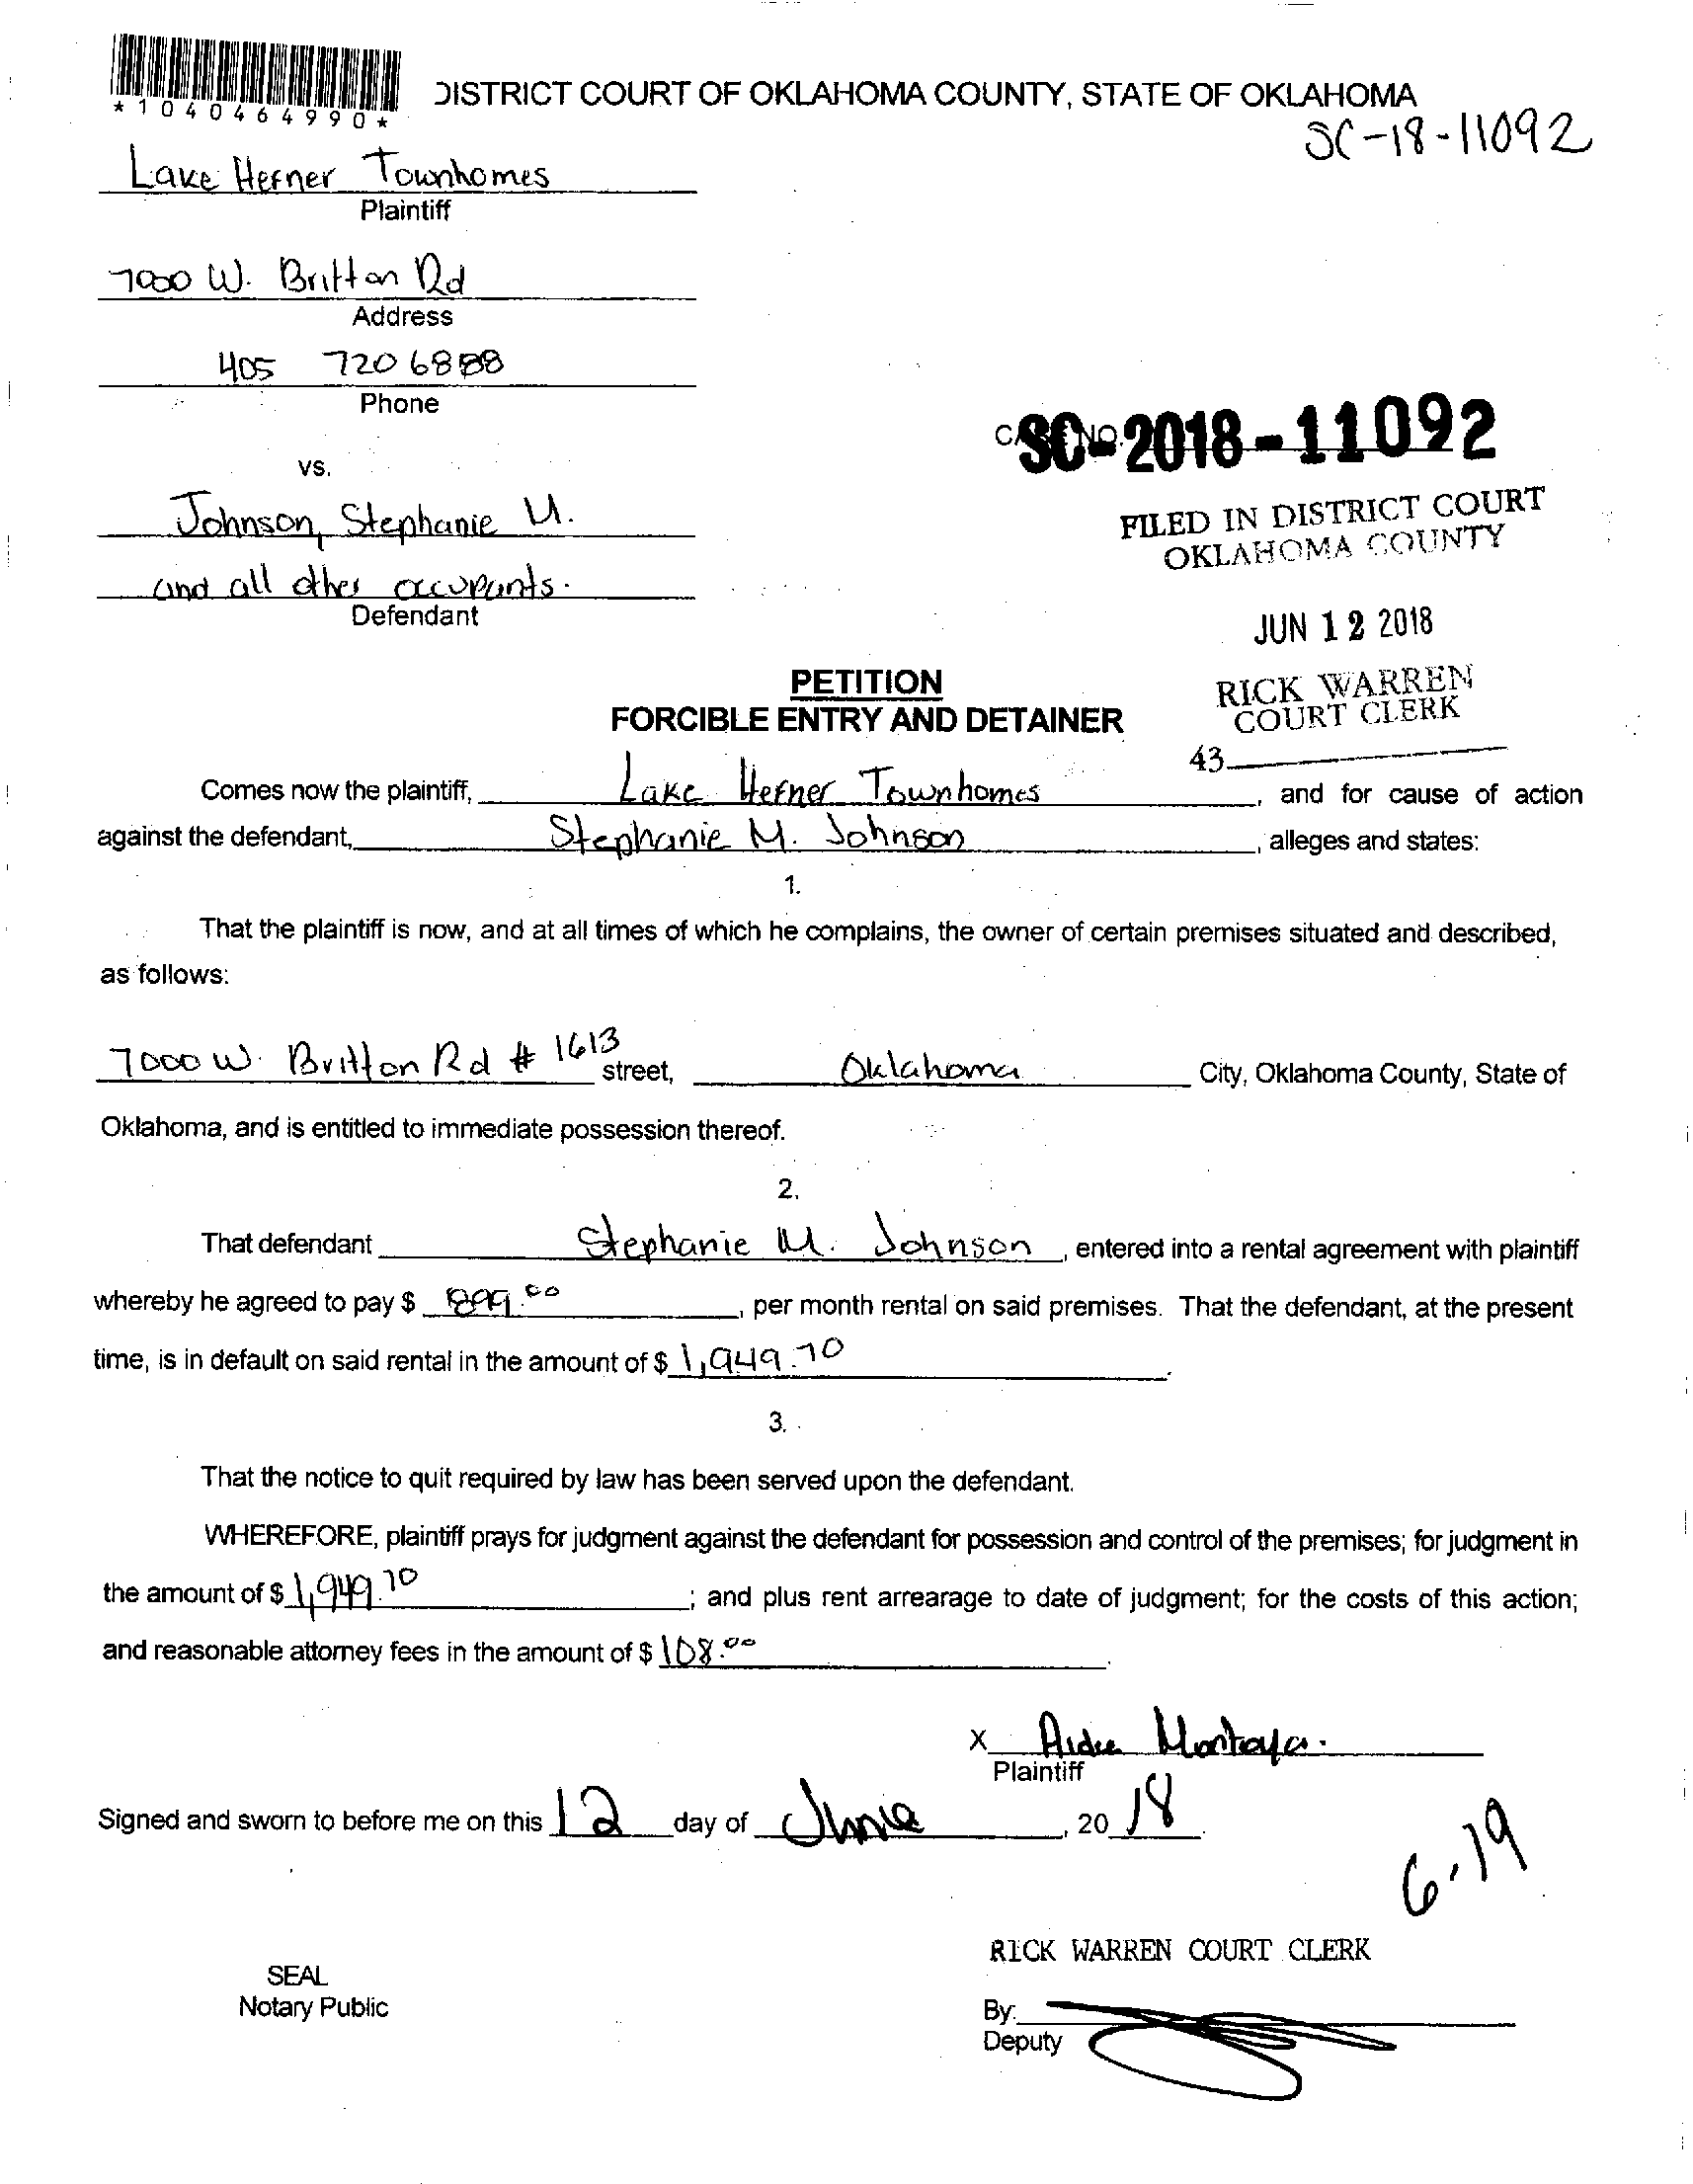 *1040464990*
DISTRICT COURT OF OKLAHOMA COUNTY, STATE OF OKLAHOMA
SC-18-11092
Lake Hefner Townhomes
Plaintiff
7000 W. Britton Rd
Address
405 720 6888
Phone
vs.
CASE NO. SC-2018-11092
Johnson, Stephanie M.
and all other occupants.
Defendant
FILED IN DISTRICT COURT
OKLAHOMA COUNTY
JUN 12 2018
RICK WARREN
COURT CLERK
43
PETITION
FORCIBLE ENTRY AND DETAINER
Comes now the plaintiff, Lake Hefner Townhomes, and for cause of action
against the defendant, Stephanie M. Johnson, alleges and states:
1.
That the plaintiff is now, and at all times of which he complains, the owner of certain premises situated and described,
as follows:
7000 W. Britton Rd # 1613 street, Oklahoma City, Oklahoma County, State of
Oklahoma, and is entitled to immediate possession thereof.
2.
That defendant Stephanie M. Johnson, entered into a rental agreement with plaintiff
whereby he agreed to pay $ 899.00, per month rental on said premises. That the defendant, at the present
time, is in default on said rental in the amount of $ 1,949.70.
3.
That the notice to quit required by law has been served upon the defendant.
WHEREFORE, plaintiff prays for judgment against the defendant for possession and control of the premises; for judgment in
the amount of $ 1,949.70; and plus rent arrearage to date of judgment; for the costs of this action;
and reasonable attorney fees in the amount of $ 108.00.
X Aidee Montoya.
Plaintiff
Signed and sworn to before me on this 12 day of June, 20 18.
6.19
RICK WARREN COURT CLERK
SEAL
Notary Public
By:
Deputy